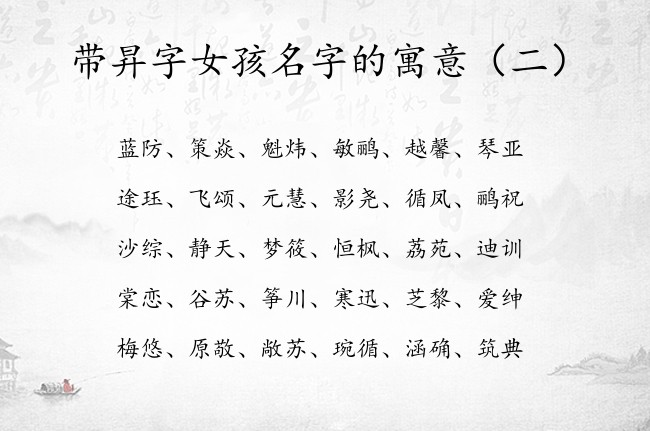 带昇字女孩名字的寓意（二）
蓝防、策焱、魁炜、敏鹂、越馨、琴亚
途珏、飞颂、元慧、影尧、循凤、鹂祝
沙综、静天、梦筱、恒枫、荔苑、迪训
棠恋、谷苏、筝川、寒迅、芝黎、爱绅
梅悠、原敬、敞苏、琬循、涵确、筑典